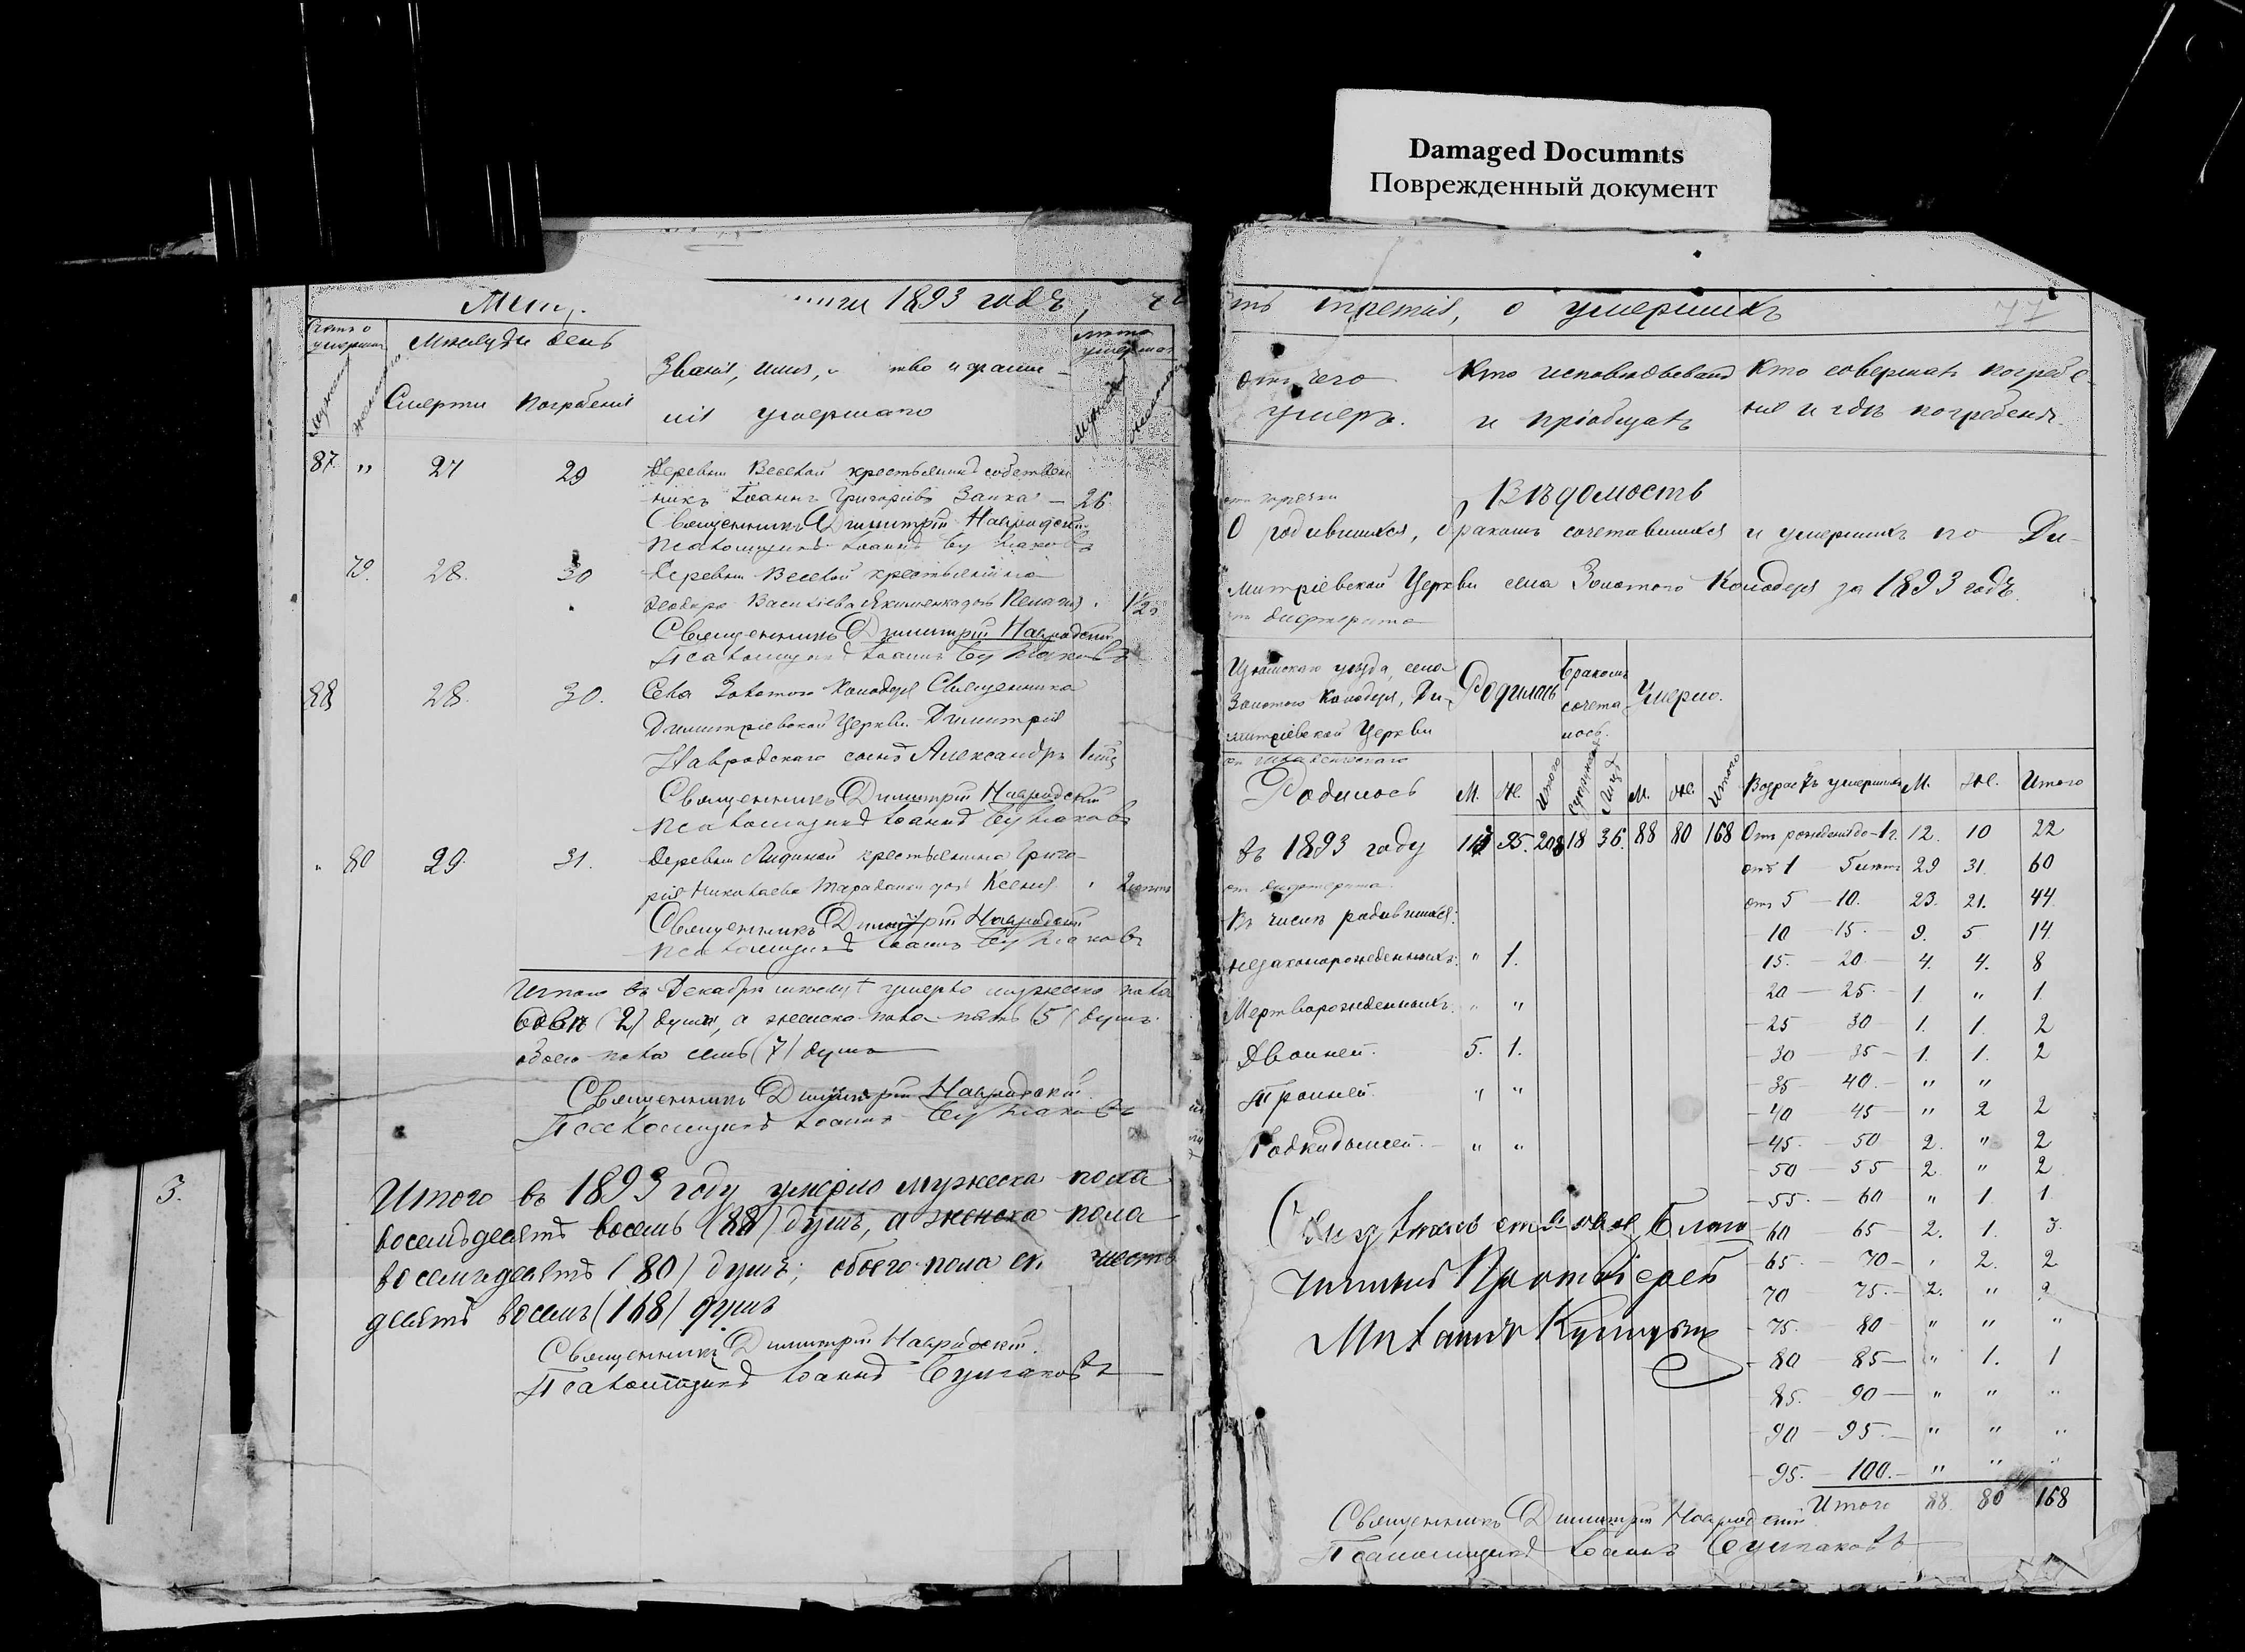 Damaged Documnts
Поврежденный документ
1893 годъ,
третія, о умершихъ
77
Мѣсяцъ и день
Смерти Погребенія
Званія, имя,
умершаго
отъ чего
умеръ.
Кто исповѣдывалъ
и пріобщалъ
Кто совершалъ погребе-
ніе и гдѣ погребены.
87 " 27 29 Деревни Веселой крестьянинъ собствен
никъ Іоаннъ Григоріевъ Заика - 26
Священникъ Димитрій Навродскій
Псаломщикъ Іоаннъ Булгаковъ
79. 28. 30 Деревни Веселой крестьянина
Ѳеодора Василіева дочь Пелагія " 1½
Священникъ Димитрій Навродскій
Псаломщикъ Іоаннъ Булгаковъ
88 28. 30. Села Золотого Колодезя Священника
Димитріевской Церкви Димитрія
Навродскаго сынъ Александръ
Священникъ Димитрій Навродскій
Псаломщикъ Іоаннъ Булгаковъ
" 80 29. 31. Деревни крестьянина Григо-
рія Николаева дочь Ксенія " 2
Священникъ Димитрій Навродскій
Псаломщикъ Іоаннъ Булгаковъ
Итого въ Декабрѣ умерло мужеска пола
(2) души, а женска пола пять (5) душъ
обоего пола семь (7) душъ
Священникъ Димитрій Навродскій
Псаломщикъ Іоаннъ Булгаковъ
Итого въ 1893 году умерло мужеска пола
восемьдесятъ восемь (88) душъ, а женска пола
восемьдесятъ (80) душъ; обоего пола
десятъ восемь (168) душъ
Священникъ Димитрій Навродскій
Псаломщикъ Іоаннъ Булгаковъ
3.
Вѣдомость
О родившихся, бракомъ сочетавшихся и умершихъ по Ди-
митріевской Церкви села Золотого Колодезя за 1893 годъ.
отъ дифтерита
уѣзда, села
Золотого Колодезя, Ди-
митріевской Церкви
Родилось
Бракомъ
сочета
лось.
Умерло.
Родилось М. Ж. Итого М. Ж. Итого Возрастъ умершихъ М. Ж. Итого
въ 1893 году 95. 208 18 36. 88 80 168 Отъ рожденія до 1 г. 12. 10 22
отъ 1 5 лѣтъ 29 31. 60
отъ дифтерита
отъ 5 10. 23. 21. 44
Въ числѣ родившихся:
10 15. 9. 5 14.
незаконорожденныхъ: " 1.
15. 20 4. 4. 8
20 25. 1 " 1
Мертворожденныхъ. " "
25 30 1. 1. 2
Двойней. 5. 1.
30 35 1. 1. 2
35 40. " "
Тройней. " "
40 45 " 2 2
Подкидышей. " "
45. 50 2. " 2
50 55 2. " 2
55. 60 " 1 1
60 65 2. 1. 3
65. 70 " 2. 2
70 75. 2. " 2
75. 80 " " "
80 85 " 1. 1
85. 90 " " "
90 95. " " "
95. 100. " " "
Итого 88 80 168
Благо
чинный Протоіерей
Михаилъ
Священникъ Димитрій Навродскій
Псаломщикъ Іоаннъ Булгаковъ